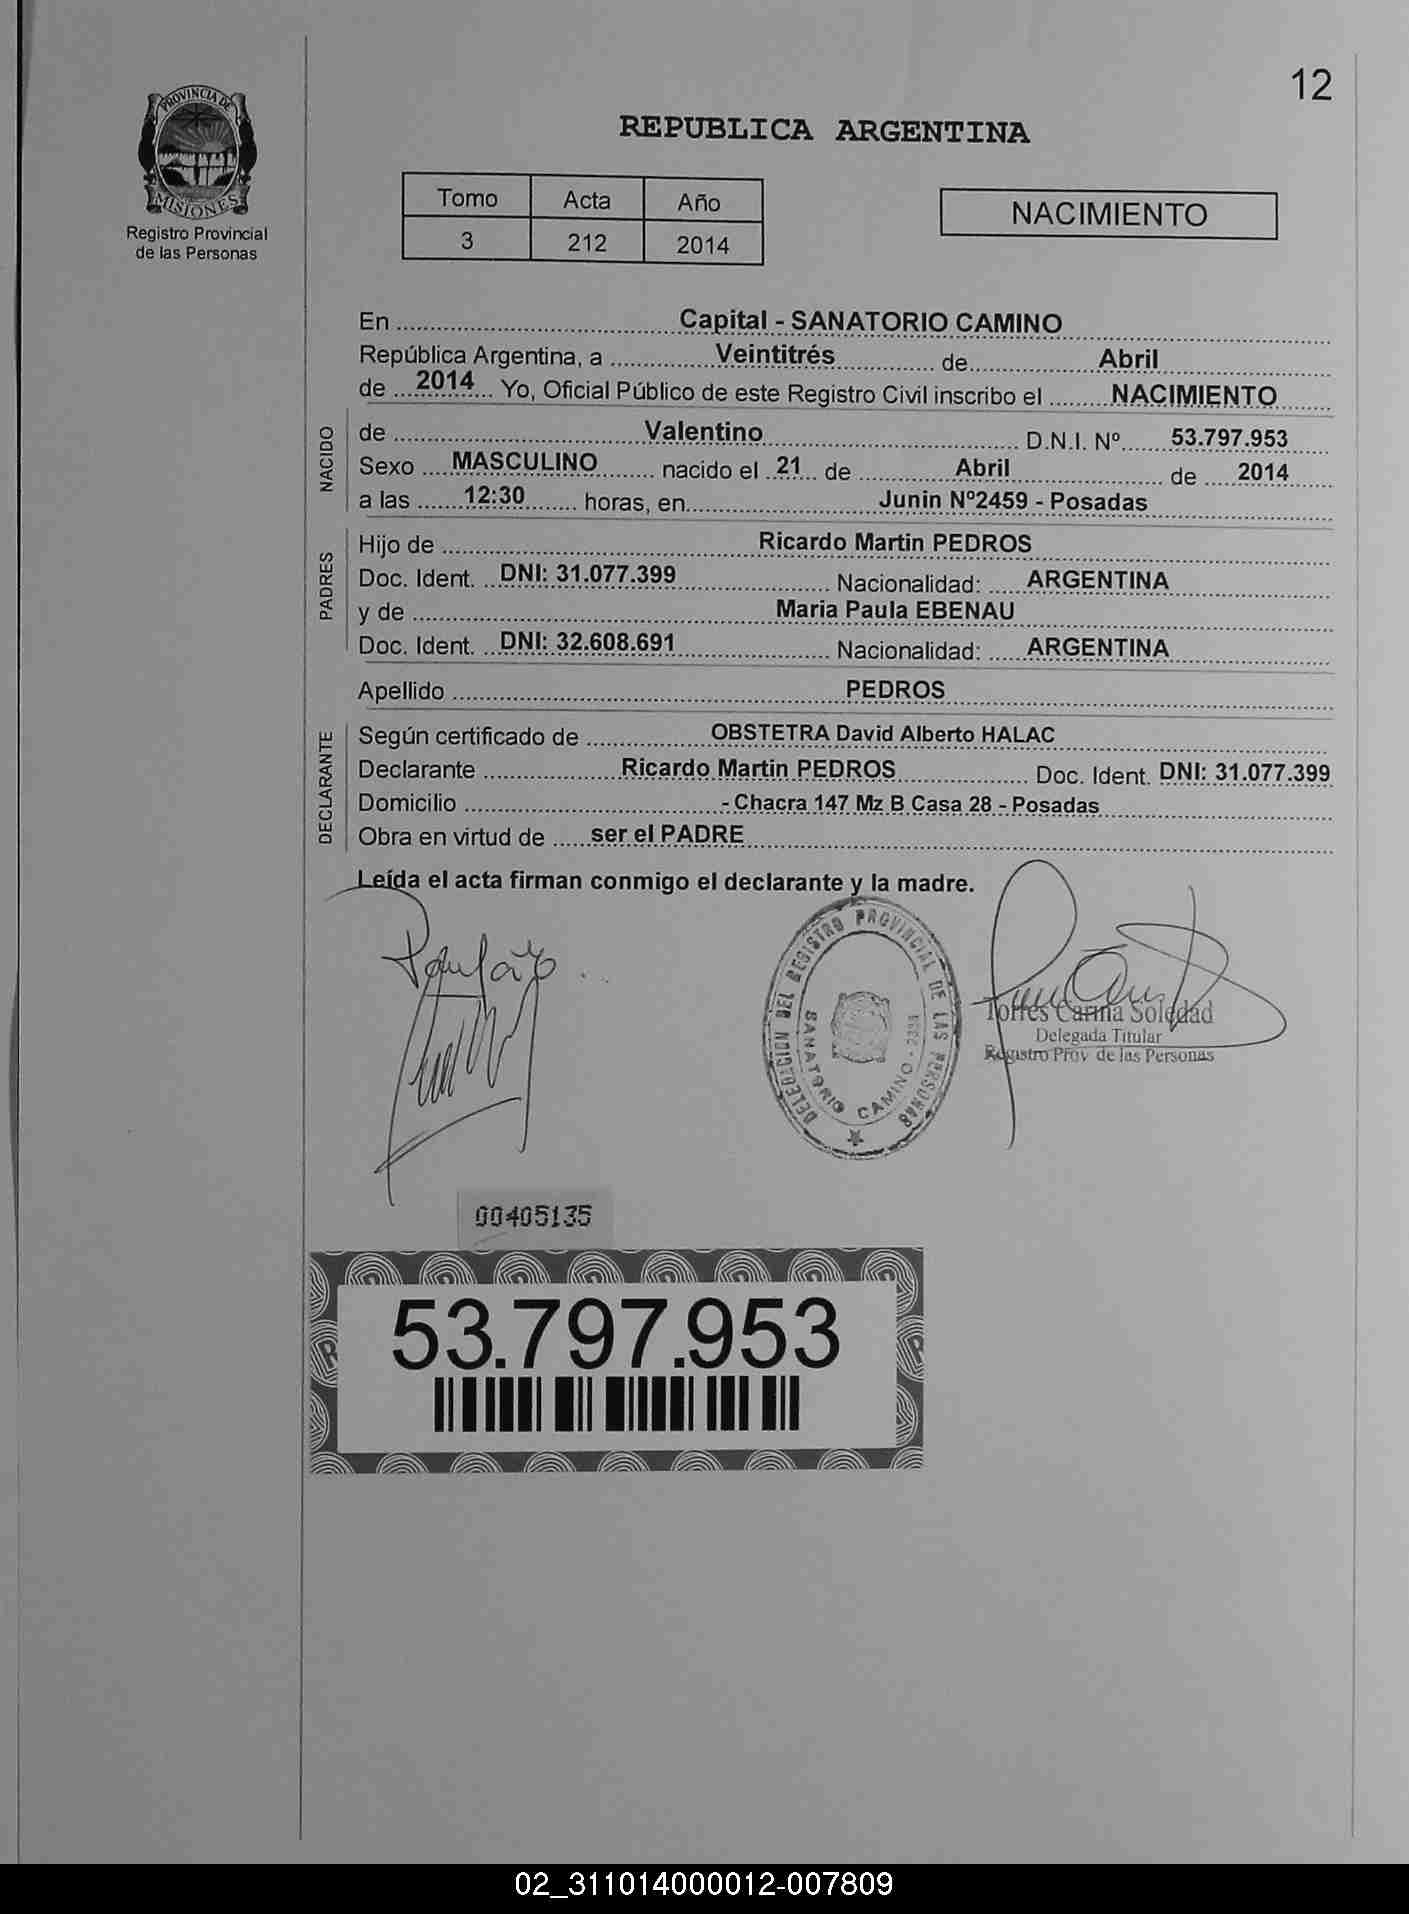 12
PROVINCIA DE
MISIONES
Registro Provincial
de las Personas
REPUBLICA ARGENTINA
Tomo Acta Año
3 212 2014
NACIMIENTO
En Capital - SANATORIO CAMINO
República Argentina, a Veintitrés de Abril
de 2014 Yo, Oficial Público de este Registro Civil inscribo el NACIMIENTO
NACIDO
de Valentino D.N.I. Nº 53.797.953
Sexo MASCULINO nacido el 21 de Abril de 2014
a las 12:30 horas, en Junin Nº2459 - Posadas
PADRES
Hijo de Ricardo Martin PEDROS
Doc. Ident. DNI: 31.077.399 Nacionalidad: ARGENTINA
y de Maria Paula EBENAU
Doc. Ident. DNI: 32.608.691 Nacionalidad: ARGENTINA
Apellido PEDROS
DECLARANTE
Según certificado de OBSTETRA David Alberto HALAC
Declarante Ricardo Martin PEDROS Doc. Ident. DNI: 31.077.399
Domicilio - Chacra 147 Mz B Casa 28 - Posadas
Obra en virtud de ser el PADRE
Leída el acta firman conmigo el declarante y la madre.
DELEGACION DEL REGISTRO PROVINCIAL DE LAS PERSONAS
SANATORIO CAMINO
Torres Carina Soledad
Delegada Titular
Registro Prov de las Personas
00405135
53.797.953
02_311014000012-007809